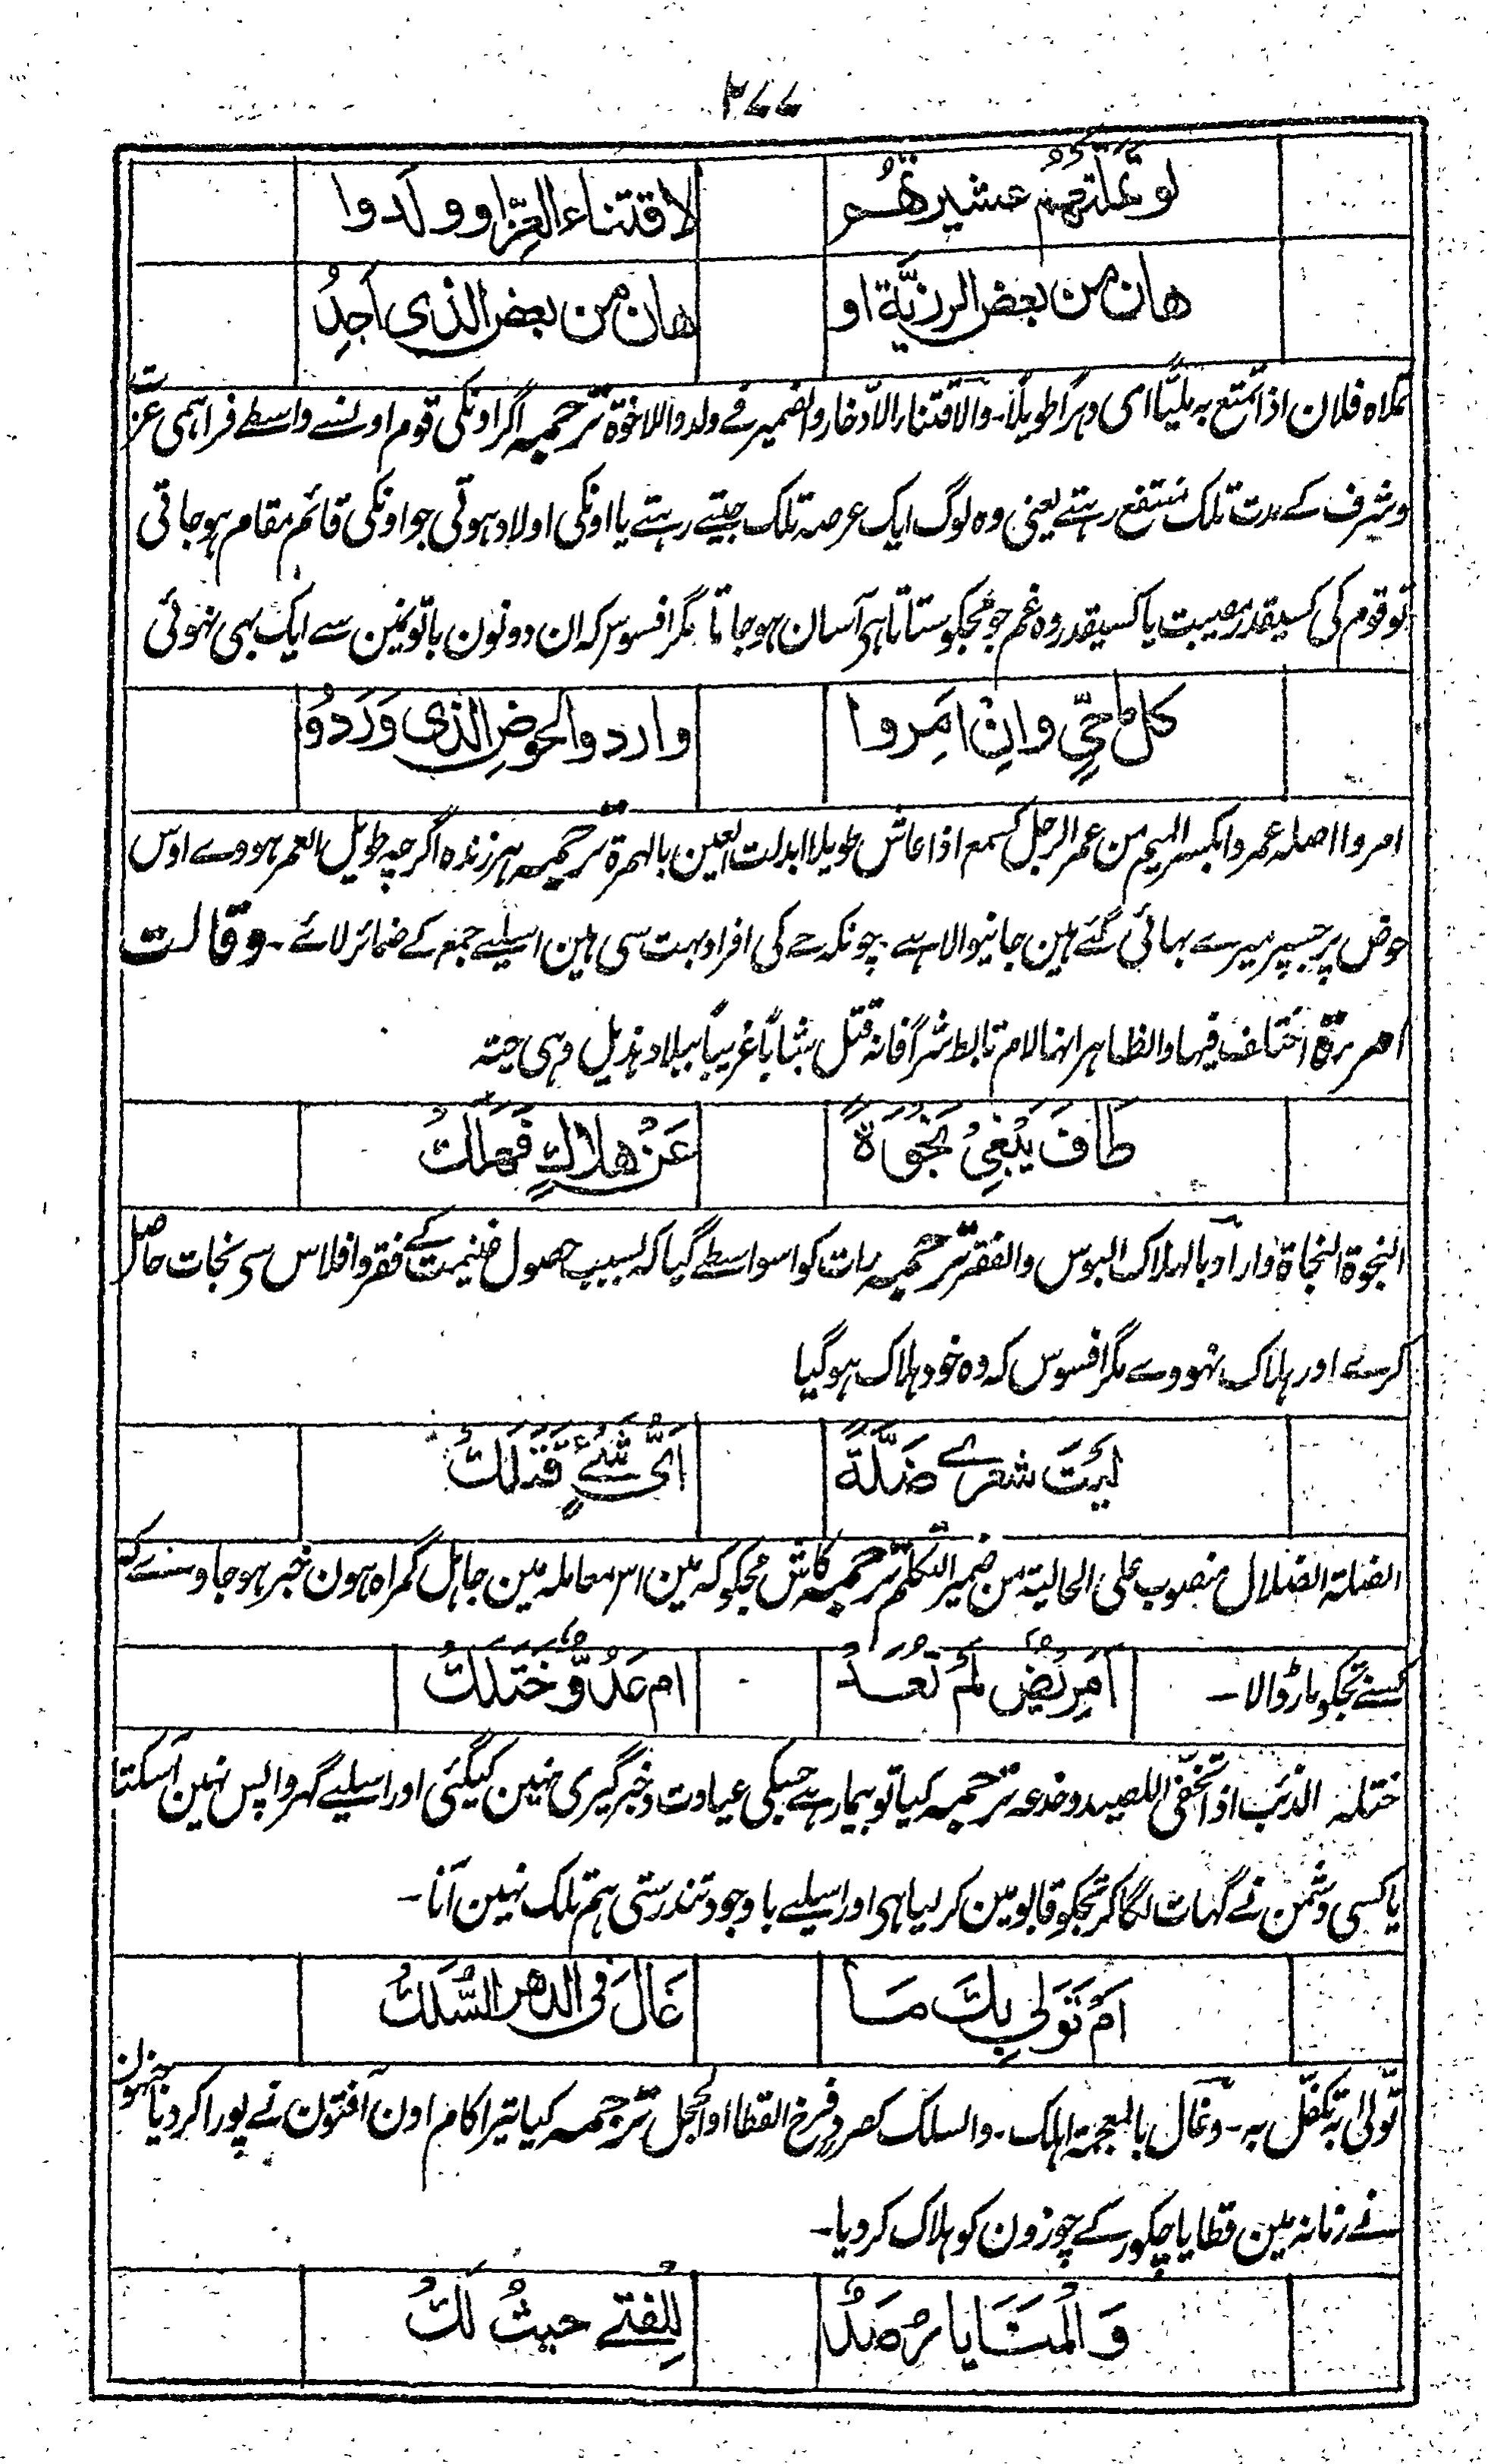 ۳۷۷
لو تملتهم عشيرتهم لاقتناء العز او ولدوا
هان من بعض الرزية او هان من بعض الذى اجد
تملاه فلان اذا تمتع به ملیّا ای دہراً طویلاً۔ والاقتناء الادّخار والضمیر فے ولدوا للاخوۃ ترجمہ اگر اونکی قوم اونسے واسطے فراہمی عزت
وشرف کے مدت تلک منتفع رہتے یعنی وہ لوگ ایک عرصہ تلک جیتے رہتے یا اونکی اولاد ہوتی جو اونکی قائم مقام ہو جاتی
تو قوم کی کسیقدر مصیبت یا کسیقدر وہ غم جو مجکو ستاتا ہی آسان ہو جاتا مگر افسوس کہ ان دونون باتونمین سے ایک بہی نہوئی
كل ما حيٍّ وان امروا واردوا الحوض الذى وردوا
امروا اصلہ عمروا بکسر المیم من عمر الرجل کسمع اذا عاش طویلا ابدلت العین بالہمزۃ ترجمہ ہر زندہ اگرچہ طویل العمر ہووے اوس
حوض پر جسپر میرے بہائی گئے ہین جانیوالا ہے۔ چونکہ حے کی افراد بہت سی ہین اسلیے جمع کے ضمائر لائے۔ وقالت
امرءة اختلف فیہا والظاہر انہا لام تابط شراً فانہ قتل شاباً غریباً ببلاد ہذیل وہی حیتہ
طَافَ يَبْغِيْ نَجْوَةً عَنْ هلاكٍ فَهَلَكْ
النجوۃ النجاۃ واراد بالہلاک البوس والفقر ترجمہ رات کو اسواسطے گیا کہ بسبب حصول غنیمت کے فقر وافلاس سی نجات حاصل
کرے اور ہلاک نہووے مگر افسوس کہ وہ خود ہلاک ہو گیا
ليت شعرے ضَلَّةً اَيُّ شَےْءٍ قَتَلَكْ
الضلۃ الضلال منصوب علی الحالیۃ من ضمیر المتکلم ترجمہ کاش مجکو کہ مین اس معاملہ مین جاہل گمراہ ہون خبر ہو جاوے کہ
کسنے تجکو مار ڈالا۔ اَمَرِيْضٌ لَمْ تُعَدْ ام عَدُوٌّ خَتَلَكْ
ختلہ الذئب اذا تخفّی للصید وخدعہ ترجمہ کیا تو بیمار ہے جسکی عیادت و خبر گیری نہین کیگئی اور اسلیے گہر واپس نہین آسکتا
یا کسی دشمن نے گہات لگا کر تجکو قابو مین کر لیا ہی اور اسلیے باوجود تندرستی ہم تلک نہین آتا۔
اَمْ تَوَلّٰى بِكَ مَا غَالَ فى الدهر السُّلَكْ
تولّی بہ تکفّل بہ۔ وغال بالمعجمۃ اہلک۔ والسلک کصرد فرخ القطا او الحجل ترجمہ کیا تیرا کام اون آفتون نے پورا کر دیا جنہون
نے زمانہ مین قطا یا چکور کے چوزون کو ہلاک کر دیا۔
وَالْمَنَايا رَصَدٌ لِلفتے حيثُ سَلَكْ